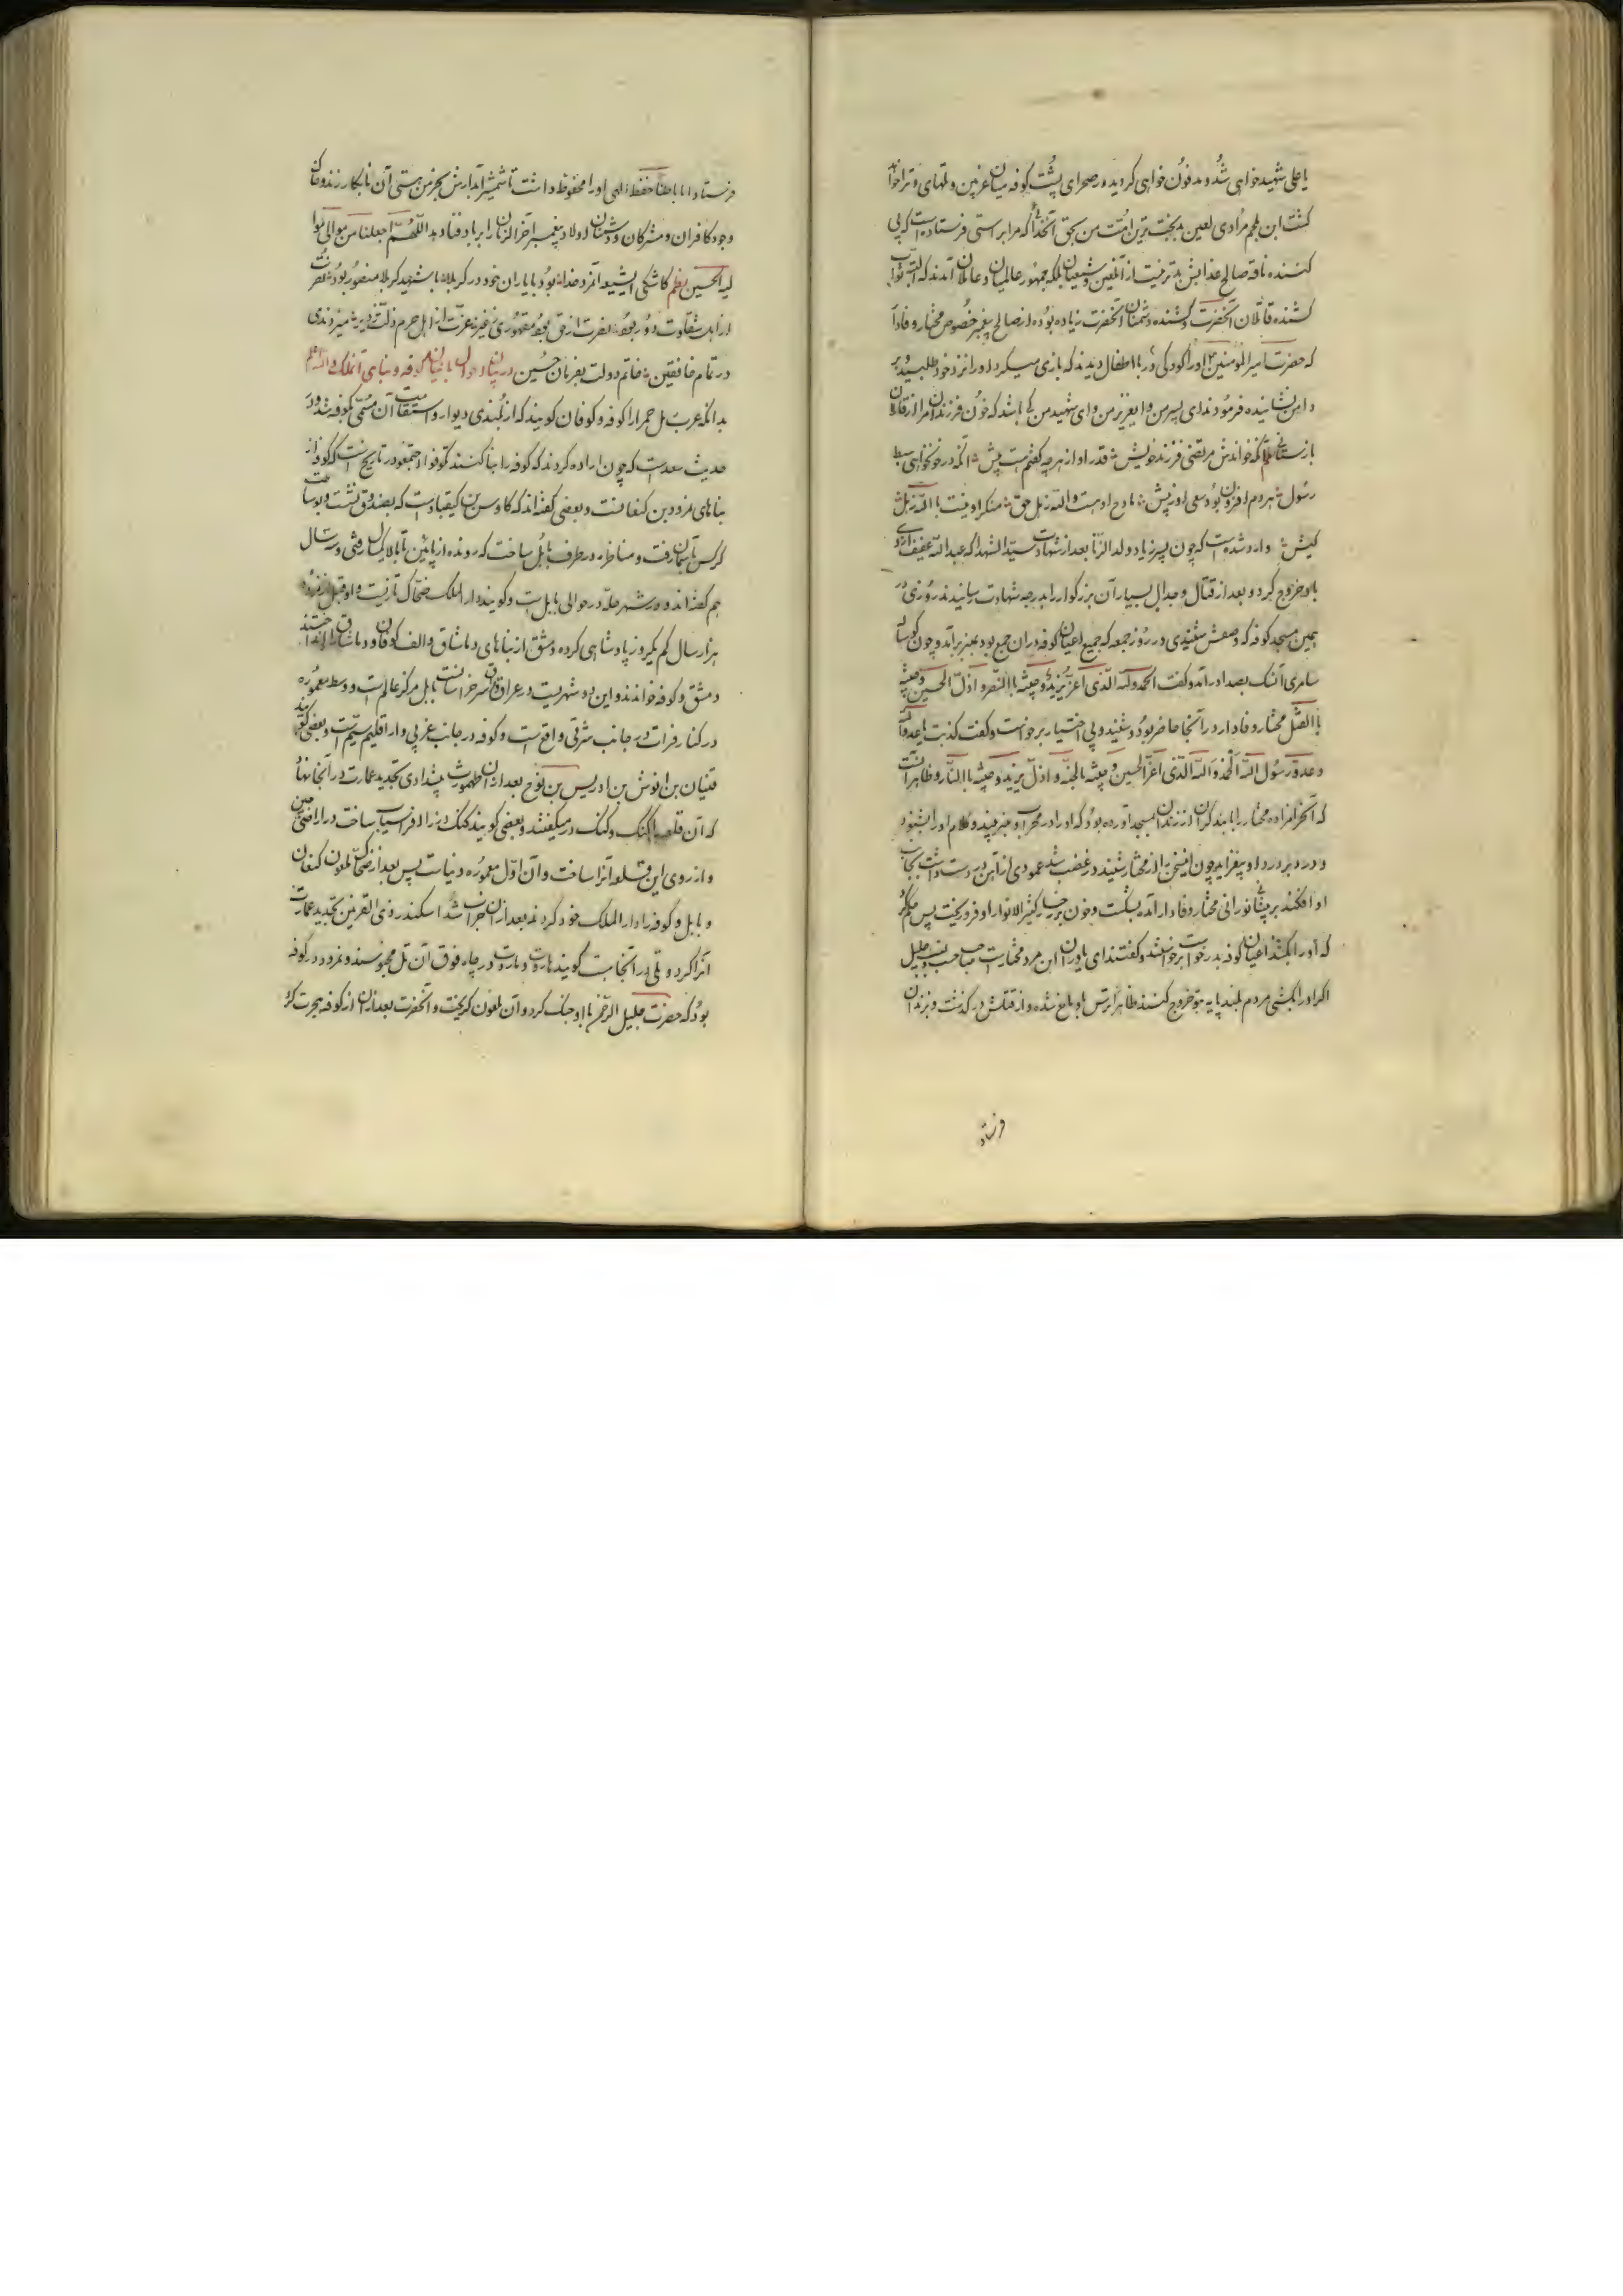 یا علی شهید خواهی شد و مدفون خواهی کردید در صحرای پشت کوفه میان غریین و تلهای و ترا خواهد
کشت ابن ملجم مرادی لعین بدبخت‌ترین امت من بحق آنخدائیکه مرا براستی فرستاده است که پی
کننده ناقه صالح عذابش بدتر نیست از آنلعین و شیعیان بلکه جمهور عالمیان و عاملان آنند که البته ثواب
کشنده قاتلان آنحضرت و کشنده دشمنان آنحضرت زیاده بوده از صالح پیغمبر خصوص مختار وفادار
که حضرت امیر المؤمنین اورا در کودکی با اطفال دیدند که بازی میکرد اورا نزد خود طلبید و بر
دامن نشانیده فرمودند ای پسر من و ای عزیز من و ای شهید من کی باشد که خون فرزندان مرا از قاتلان
بازستانی نظم آنکه خواندش مرتضی فرزند خویش قدر او از هرچه گفتم هست پیش آنکه در خونخواهی سبط
رسول هر دم افزون بود سعی او ز پیش مادح او هست والله زاهل حق منکر او نیست بالله زاهل
کیش وارد شده است که چون پسر زیاد ولد الزنا بعد از شهادت سید الشهدا که عبد الله عفیف ازدی
باو خروج کرد و بعد از قتال و جدال بسیار آن بزرگوار را بدرجه شهادت رسانیدند روزی در
همین مسجد کوفه که وصفش شنیدی در روز جمعه که جمیع اعیان کوفه در آن جمع بود بمنبر برآمد و چون گوساله
سامری آنسک بصدا درآمد و گفت الحمد لله الذی اعز یزید و جیشه بالنصر و اذل الحسین و جیشه
بالقتل مختار وفادار در آنجا حاضر بود و شنید و بی اختیار برخواست و گفت کذبت یا عدو الله
و عدو رسول الله الحمد لله الذی اعز الحسین و جیشه بالجنه و اذل یزید و جیشه بالنار و ظاهرا آنست
که آنحرامزاده مختار را با بند گران از زندان بمسجد آورده بود که او را در محراب و منبر ببیند و کلام او را بشنود
و درد بر درد او بیفزاید چون این سخن از مختار شنید در غضب شد عمودی از آهن در دست داشت بجانب
او افکند بر پیشانی نورانی مختار وفادار آمد بشکست و خون بر رخسار کثیر الانوار او فرو ریخت پس حکم کرد
که او را بکشند اعیان کوفه بدرخواست برخواستند و گفتند ای یاوران این مرد مختار است صاحب نسب جلیل
اگر او را بکشی مردم بلند پایه بتو خروج کنند ظاهرا ترس باو مانع شده و از قتلش درگذشت و بزندان
فرستاد
فرستاد اما باطنا حفظ الهی او را محفوظ داشت تا شمشیر آبدارش بخرمن هستی آن نابکار زند و خاک
وجود کافران و مشرکان و دشمنان اولاد پیغمبر آخر الزمان را بر باد فنا دهد اللهم اجعلنا من موالی
الحسین نظم کاشکی این شیعه آنروز فدا بود با یاران خود در کربلا با شهید کربلا منصور بود نصرت
در تمام خافقین خاتم دولت بفرمان حسین در بیان احوال بانیان کوفه و بنای آنملک
بدانکه عرب تل حمرا را کوفه و کوفان گویند که از بلندی دیوار و استقامت آن مسمی بکوفه شد و در
حدیث سعد است که چون اراده کردند که کوفه را بنا کنند تکوفوا اجتمعوا در تاریخ است که کوفه از
بناهای نمرود بن کنعانست و بعضی گفته‌اند که کاوس بن کیقباد است که بصندوق نشست و بوساطت
کرکس بآسمان رفت و مناظره در طرف بابل ساخت که رونده از پائین تا بالا یکسال رفتی و سه سال
هم گفته‌اند و شهر حله در حوالی بابل است و گویند دار الملک ضحاک تازیست و او قبل از نمرود
هزار سال کم یکروز پادشاهی کرده دمشق از بناهای دماشاق و الف کوفان و دماشاق را انداختند
دمشق و کوفه خواندند و این دو شهریست در عراق بابل مرکز عالم است و وسط معموره
در کنار فرات در جانب شرقی واقع است و کوفه در جانب غربی و از اقلیم سیم است و بعضی گویند
قینان بن انوش بن ادریس بن نوح بعد از آن طهمورث پیشدادی تجدید عمارت در آنجا نهاد
که آن قلعه را گنگ و کنک دز میگفتند و بعضی گویند گنگ دز را افراسیاب ساخت در اراضی چین
و از روی این قلعه آنرا ساخت و آن اول معموره دنیاست پس بعد از ضحاک ملعون کنعان
و بابل و کوفه را دار الملک خود کردند بعد از آن خراب شد اسکندر ذی القرنین تجدید عمارت
آنرا کرد و تلی در آنجاست گویند هاروت و ماروت در چاه فوق آن تل محبوسند و نمرود در کوفه
بود که حضرت خلیل الرحمن با او جنک کرد و آن ملعون گریخت و آنحضرت بعد از آن از کوفه هجرت کرد